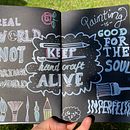 REAL
WORLD
NOT
KEEP
hand craft
ALIVE
Painting
is
GOOD
FOR
THE
SOUL
IMPERFECTIS